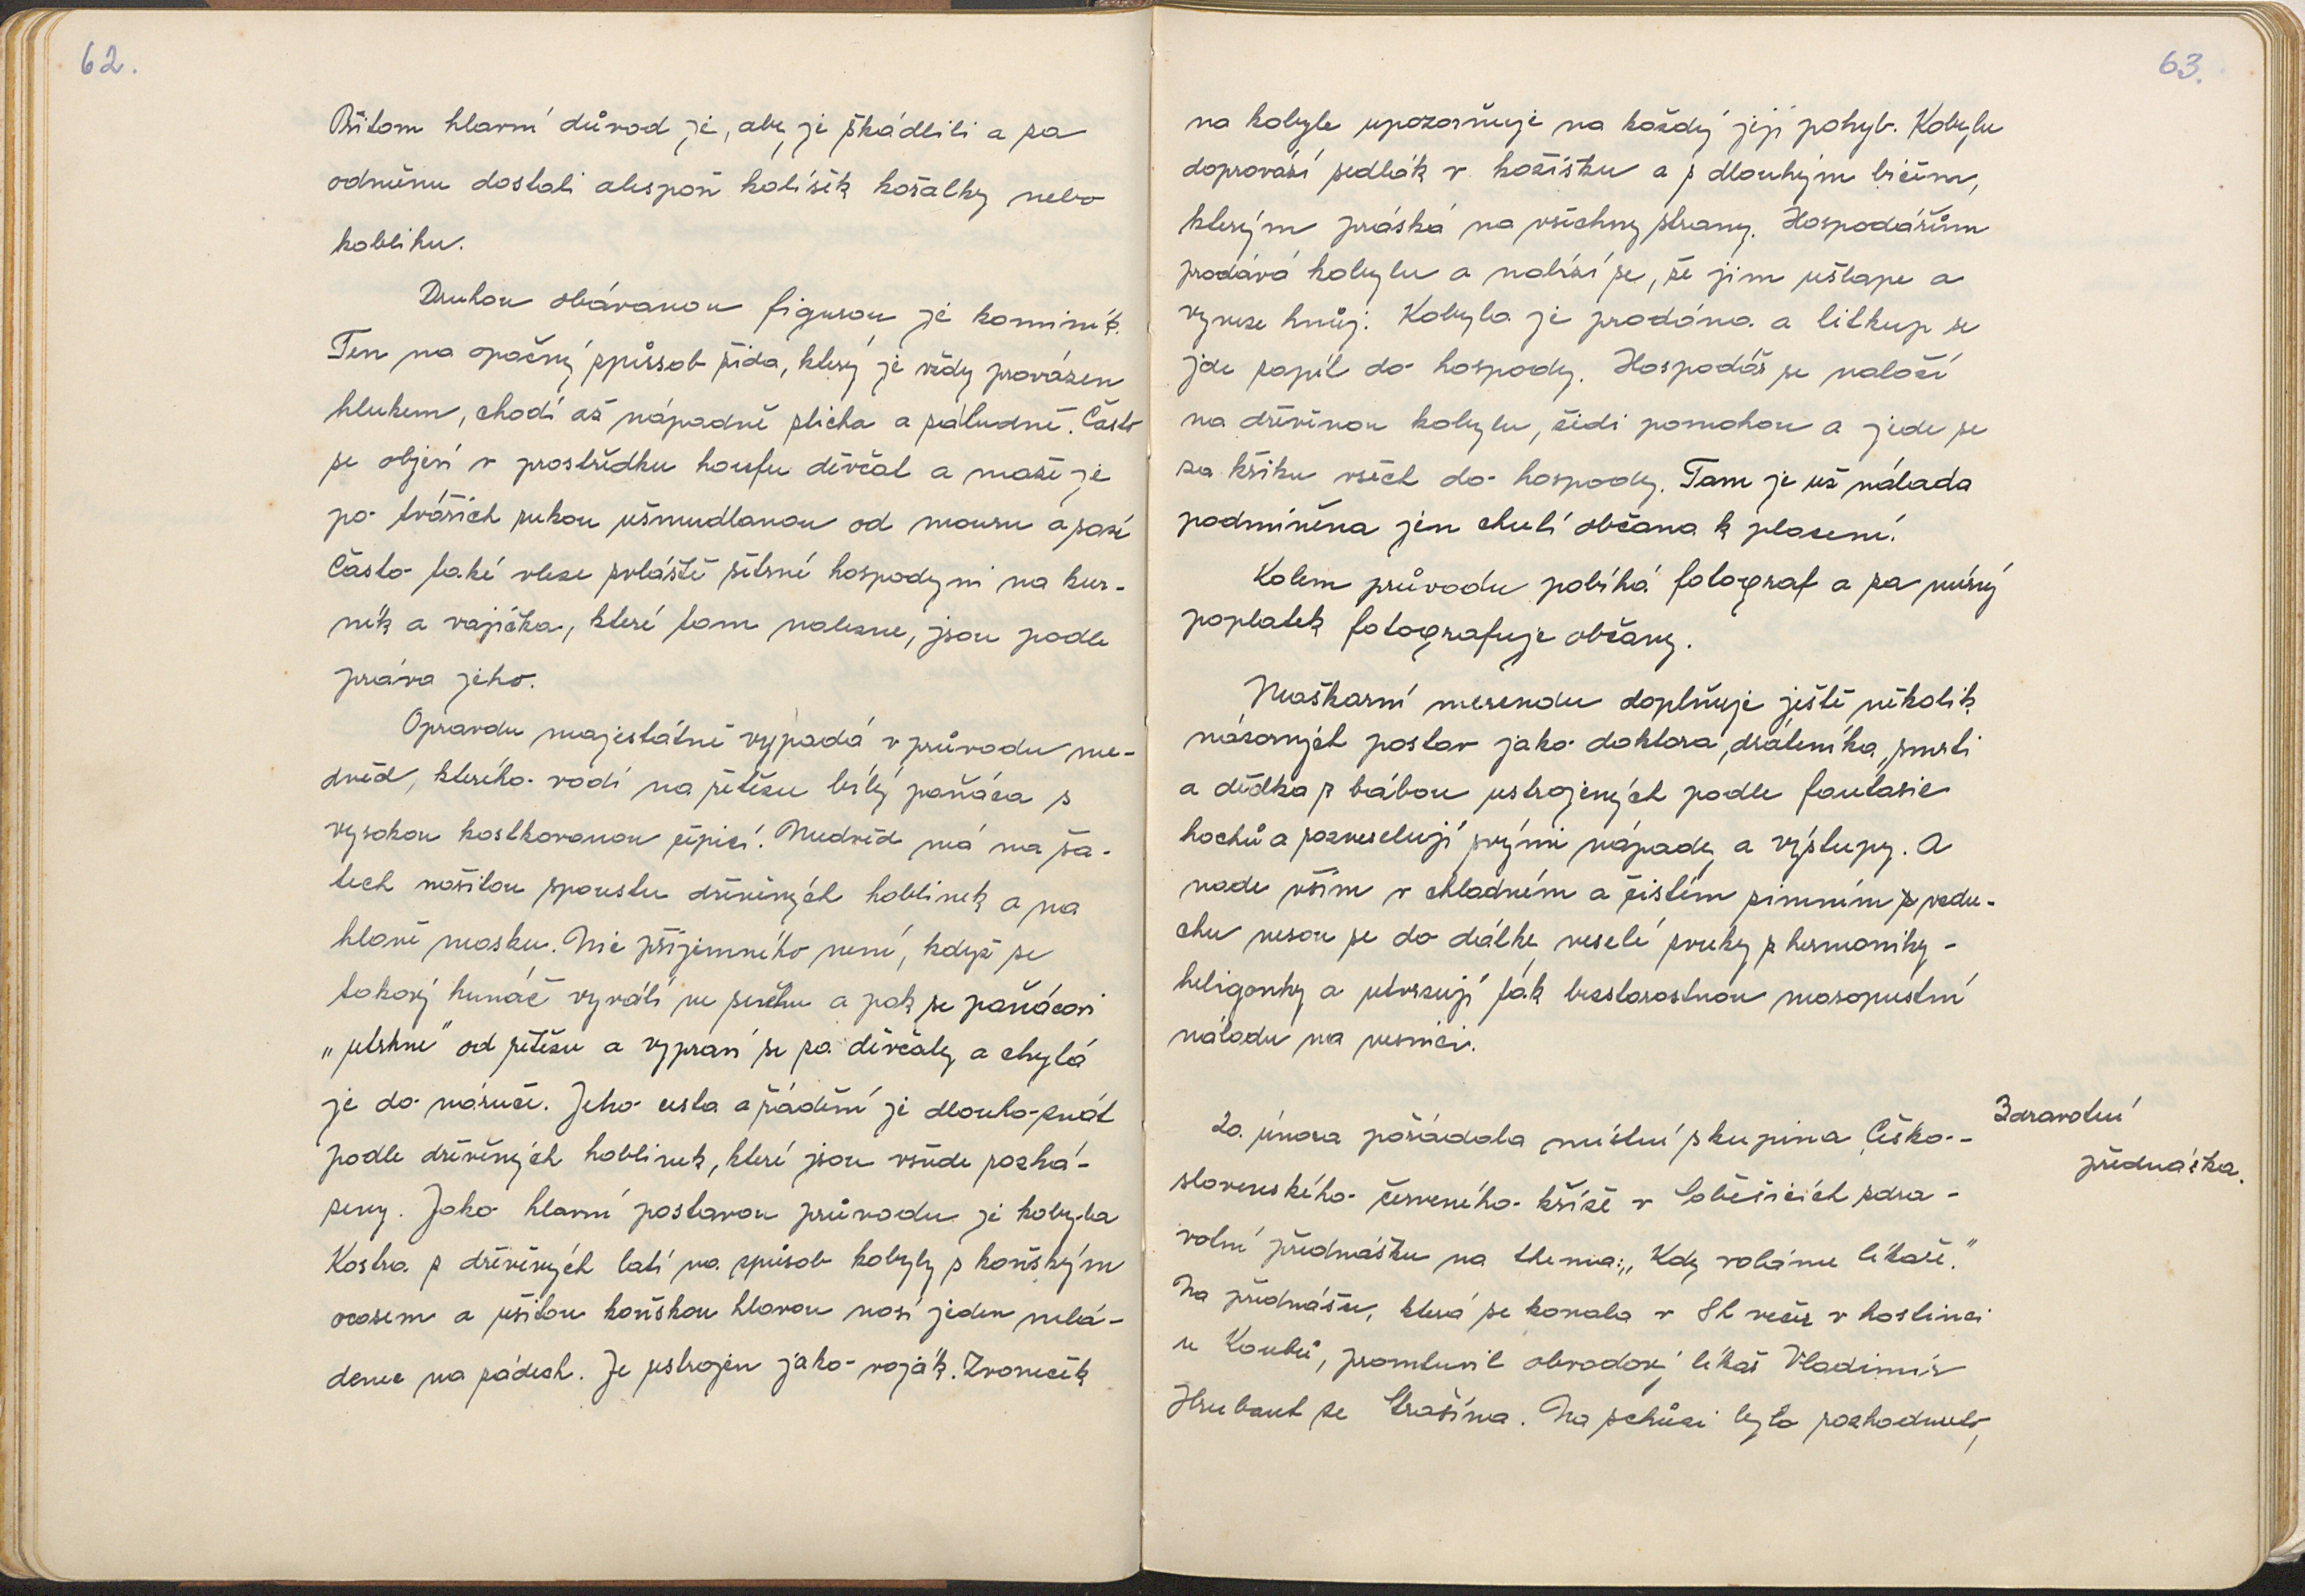 62.
Přitom hlavní důvod je, aby je škádlili a za
odměnu dostali alespoň kalíšek kořalky nebo
koblihu.
Druhou obávanou figurou je kominík.
Ten na opačný způssob žida, který je vždy provázen
hlukem, chodí až nápadně zticha a záludně. Často
se objeví v prostředku houfu děvčat a maže je
po tvářích rukou ušmudlanou od mouru a sazí
Často také vleze zvláště šetrné hospodyni na kur-
ník a vajíčka, které tam nalezne, jsou podle
práva jeho.
Opravdu majestátně vypadá v průvodu me-
dvěd, kterého vodí na řetězu bílý paňáca s
vysokou kostkovanou čepicí. Medvěd má na ša-
tech našitou spoustu dřevěných hoblinek a na
hlavě masku. Nic příjemného není, když se
takový huňáč vyválí ve sněhu a pak se paňácovi
„utrhne" od řetězu a vypraví se za děvčaty a chytá
je do náruče. Jeho cesta a řádění je dlouho znát
podle dřevěných hoblinek, které jsou všude rozhá-
zeny. Jako hlavní postavou průvodu je kobyla
Kostra z dřevěných latí na způsob kobyly s koňským
ocasem a ušitou koňskou hlavou nosí jeden mlá-
denec na zádech. Je ustrojen jako voják. Zvoneček
63.
na kobyle upozorňuje na každý její pohyb. Kobylu
doprovází sedlák v kožíšku a s dlouhým bičem,
kterým práská na všechny strany. Hospodářům
prodává kobylu a nabízí se, že jim ušlape a
vyveze hnůj. Kobyla je prodána a litkup se
jde zapít do hospody. Hospodář se naloží
na dřevěnou kobylu, židi pomohou a jede se
za křiku všech do hospody. Tam je už nálada
podmíněna jen chutí občana k placení.
Kolem průvodu pobíhá fotograf a za mírný
poplatek fotografuje občany.
Maškarní merendu doplňuje ještě několik
názorných postav jako doktora, dráteníka, smrti
a dědka s bábou ustrojených podle fantasie
hochů a rozveselují svými nápady a výstupy. A
nade vším v chladném a čistém zimním vzdu-
chu nesou se do dálky veselé zvuky z harmoniky -
heligonky a utvrzují tak bezstarostnou masopustní
náladu na vesnici.
Zdravotní
přednáška.
20. února pořádala místní skupina Česko-
slovenského červeného kříže v Soběšicích zdra-
votní přednášku na thema: „Kdy voláme lékaře."
Na přednášce, která se konala v 8h večer v hostinci
u Koubů, promluvil obvodový lékař Vladimír
Hrubant ze Strašína. Na schůzi bylo rozhodnuto,